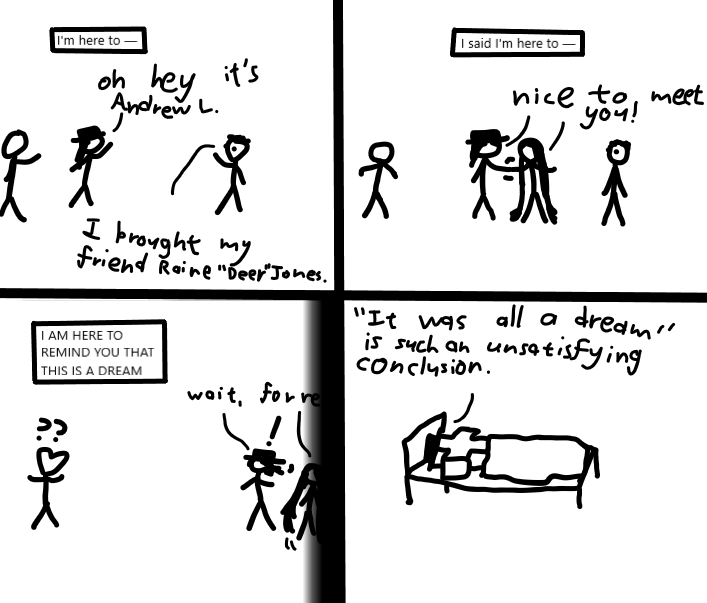 I'm here to —
oh hey it's
Andrew L.
I brought my
friend Raine "Deer" Jones.
I said I'm here to —
nice to meet
you!
I AM HERE TO
REMIND YOU THAT
THIS IS A DREAM
??
wait, for re
!
"It was all a dream"
is such an unsatisfying
conclusion.